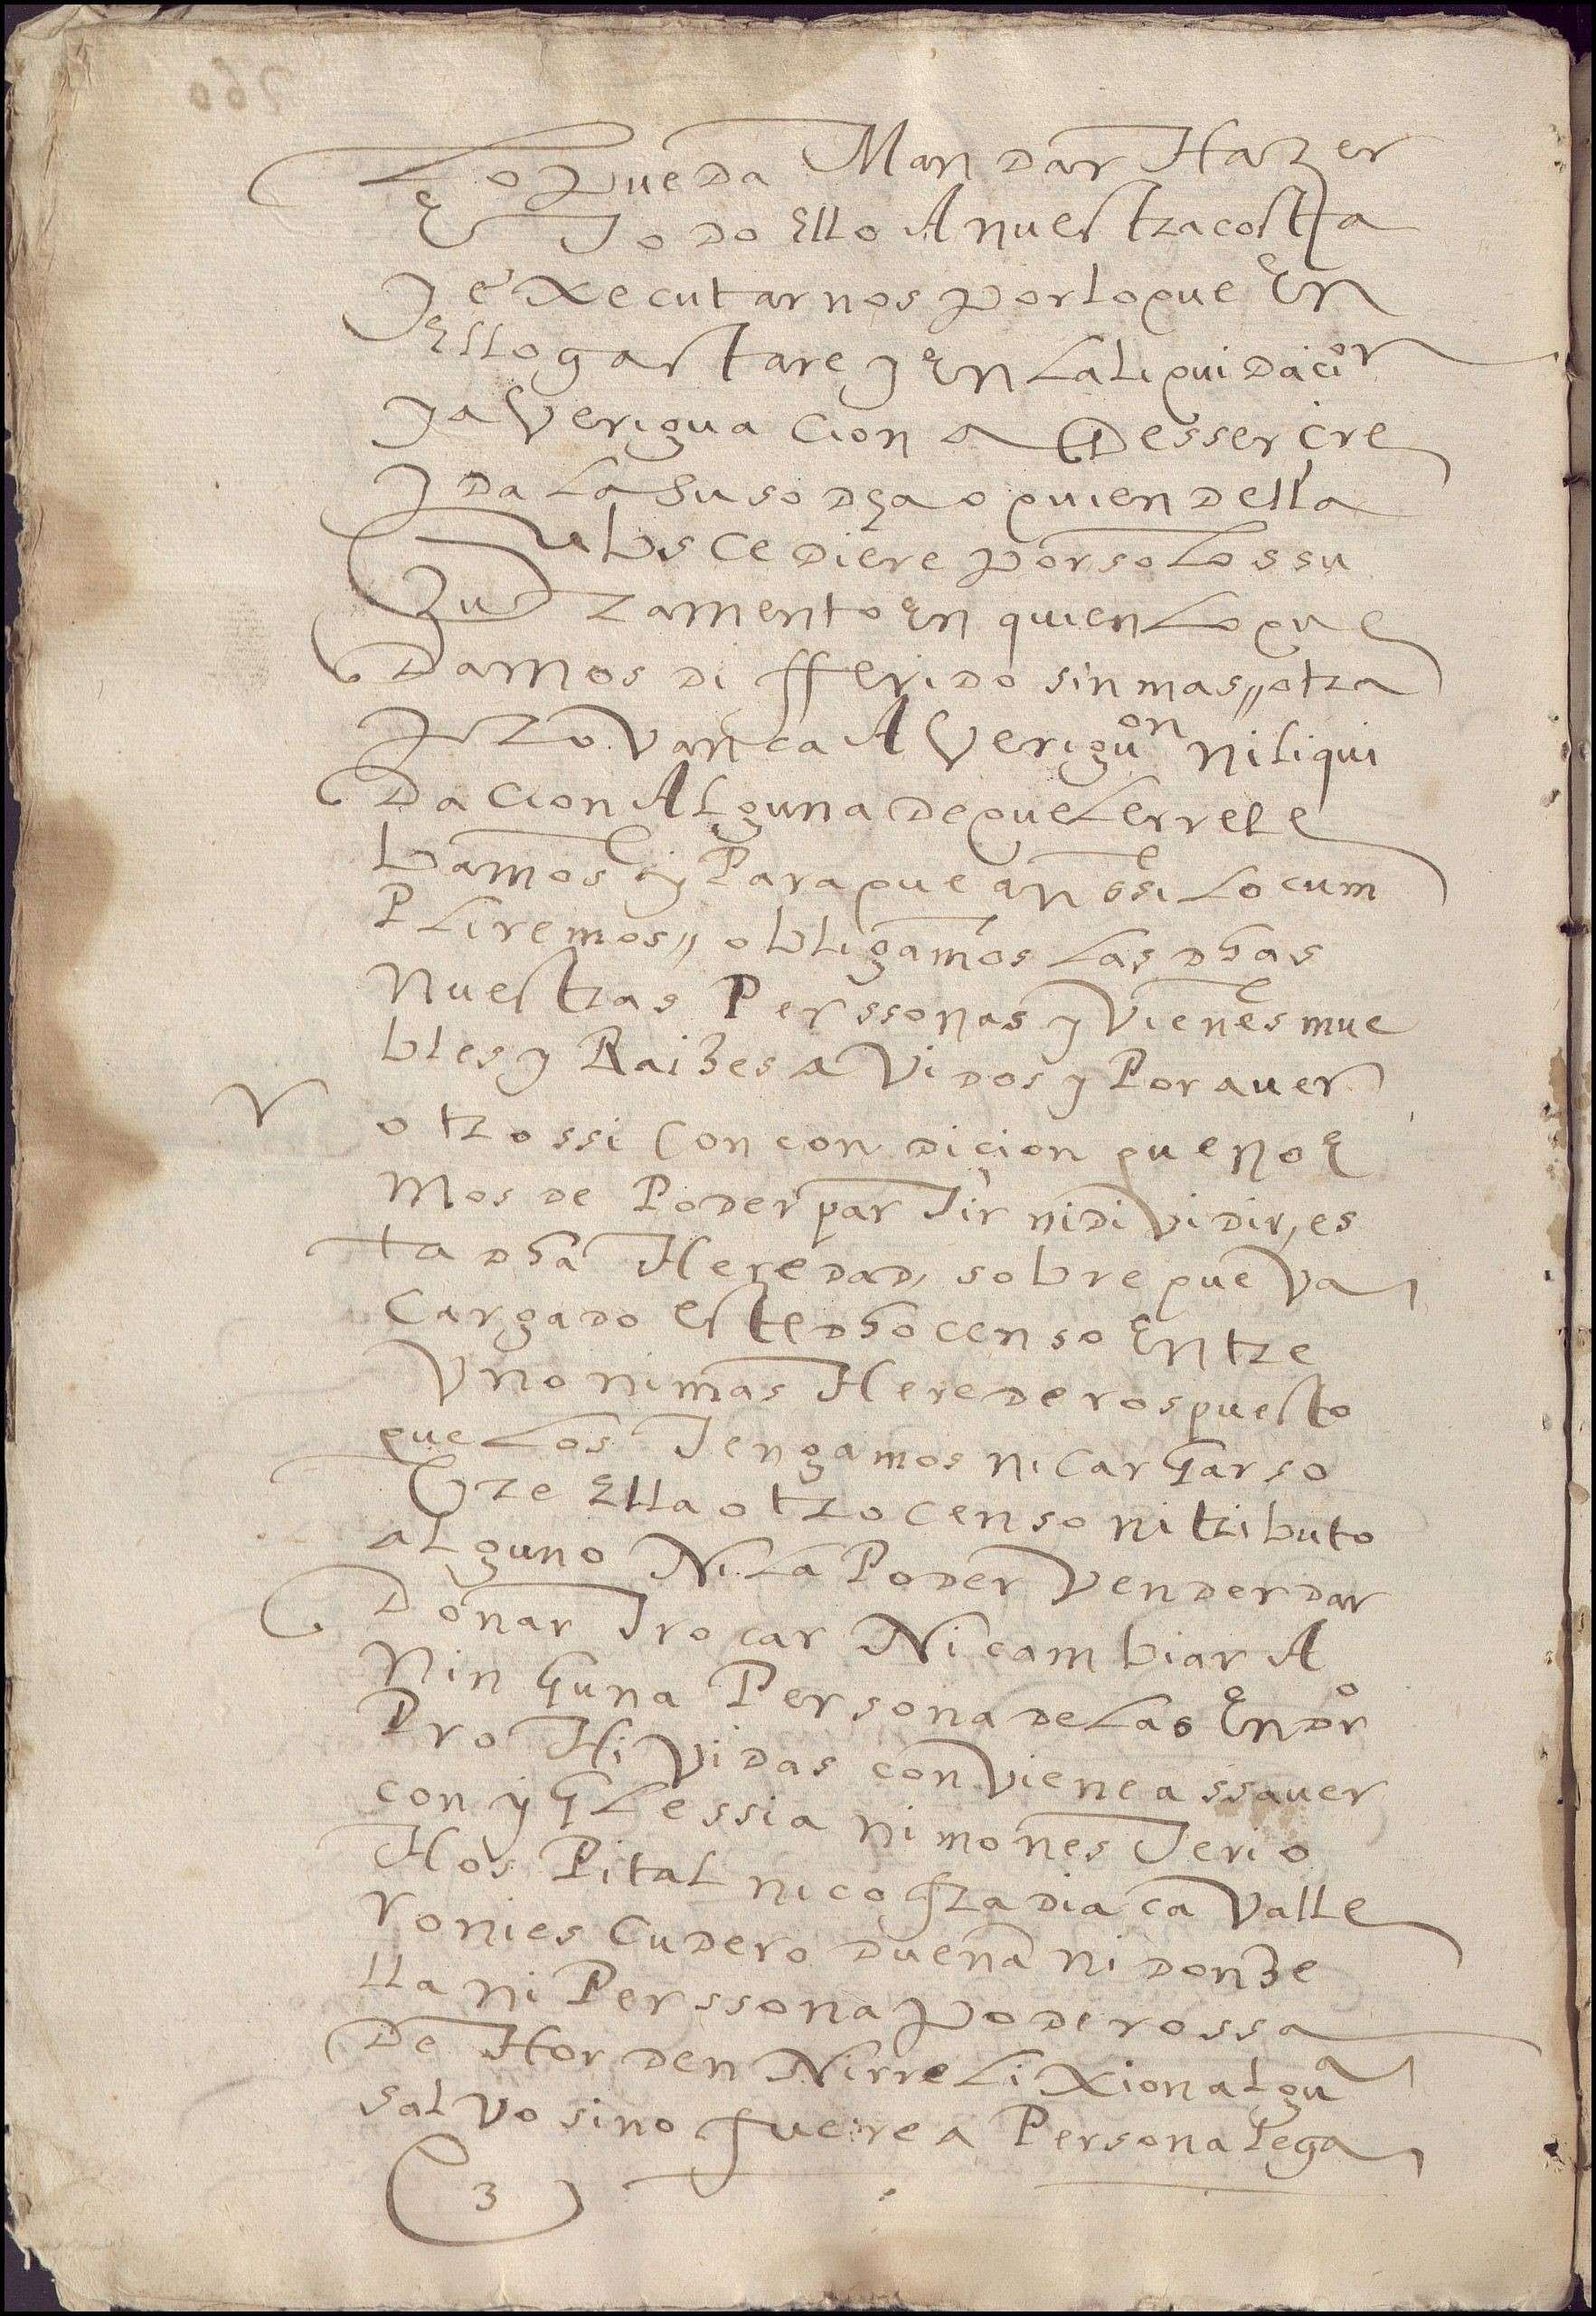 Lo pueda Mandar Hazer
E Todo ello A nuestra costa
y executarnos por lo que En
ello gastare y En la liquidacion
y averigua cion a De sser cre
yda la suso dha o quien della
subscediere por solo ssu
Jurramento En quien lo que
Damos di fferido sin mas otra
provança A verigu.on ni liqui
Dacion Alguna de que le rrele
bamos y Para que anssi lo cum
Pliremos obligamos las dhas
Nuestras Perssonas y vienes mue
bles y Raizes avidos y Por aver
otrossi con condiçion que no e
mos de Poder partir ni dividir, es
ta dha Heredad, sobre que va
cargado este dho censo Entre
uno ni mas Herederos puesto
que los Tengamos ni cargar so
bre Ella otro censo ni tributo
alguno Ni la Poder vender dar
Donar Trocar Ni cambiar A
Ninguna Persona de las En dro
ProHividas conviene a ssaver
con yglessia ni monesterio
Hos Pital ni cofradia cavalle
ro ni escudero duena ni donze
lla ni Perssona poderossa
De Horden Ni rreli xion algua
salvo si no fuere a Persona lega
3
260